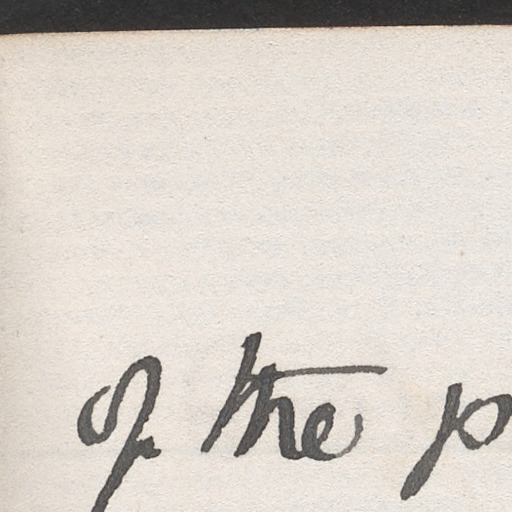 of the